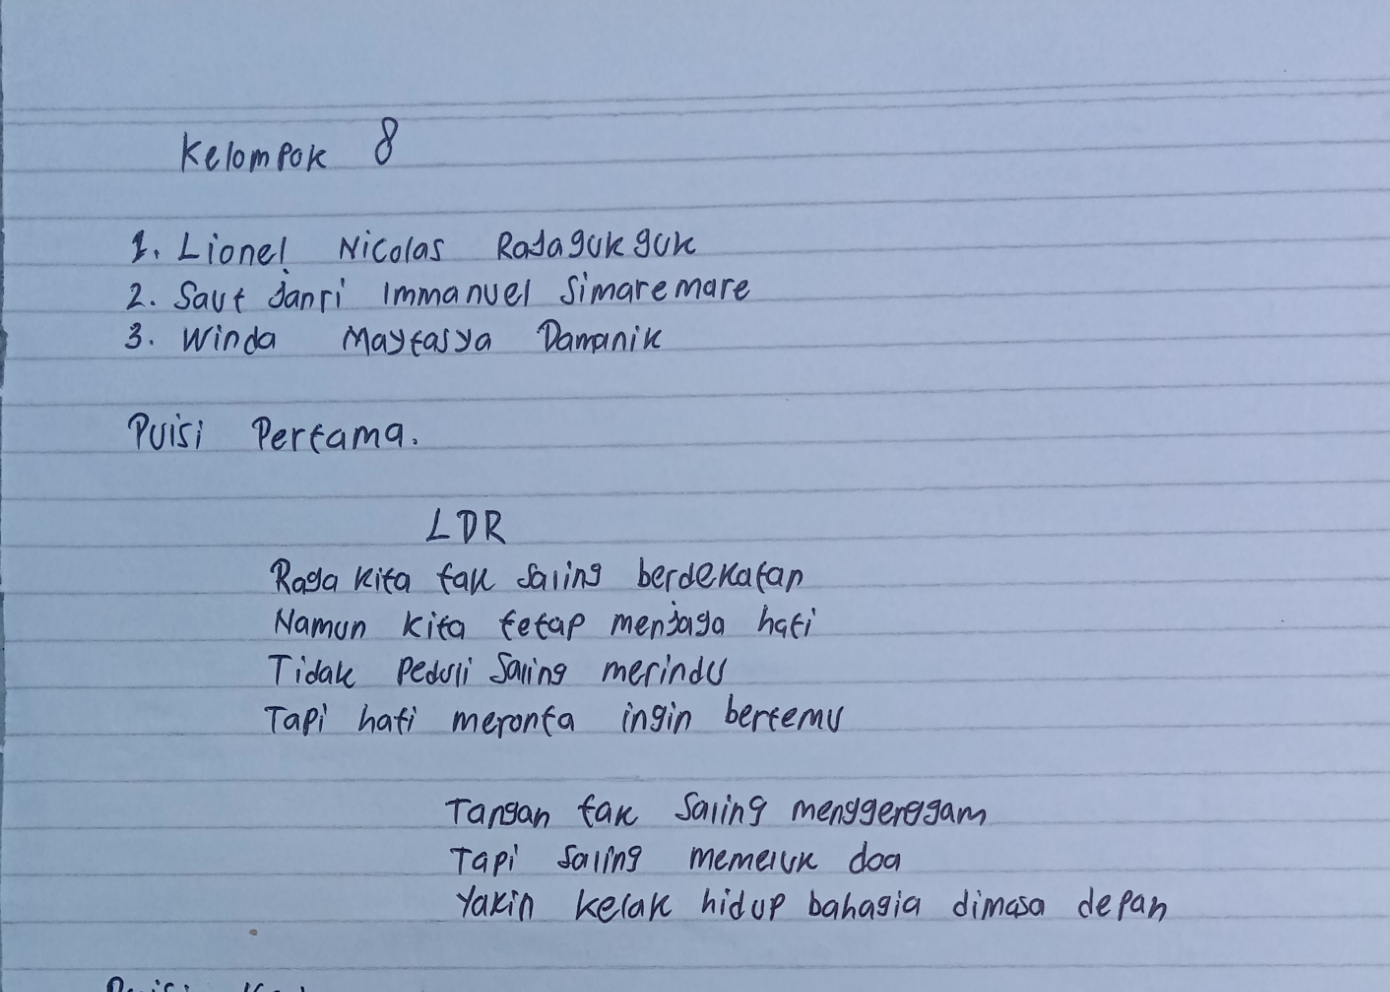 Kelompok 8
1. Lionel Nicolas Rajagukguk
2. Saut Janri Immanuel Simaremare
3. Winda Maytasya Damanik
Puisi Pertama.
LDR
Raga kita tak saling berdekatan
Namun kita tetap menjaga hati
Tidak Peduli Saling merindu
Tapi hati meronta ingin bertemu
Tangan tak Saling menggenggam
Tapi Saling memeluk doa
Yakin kelak hidup bahagia dimasa depan